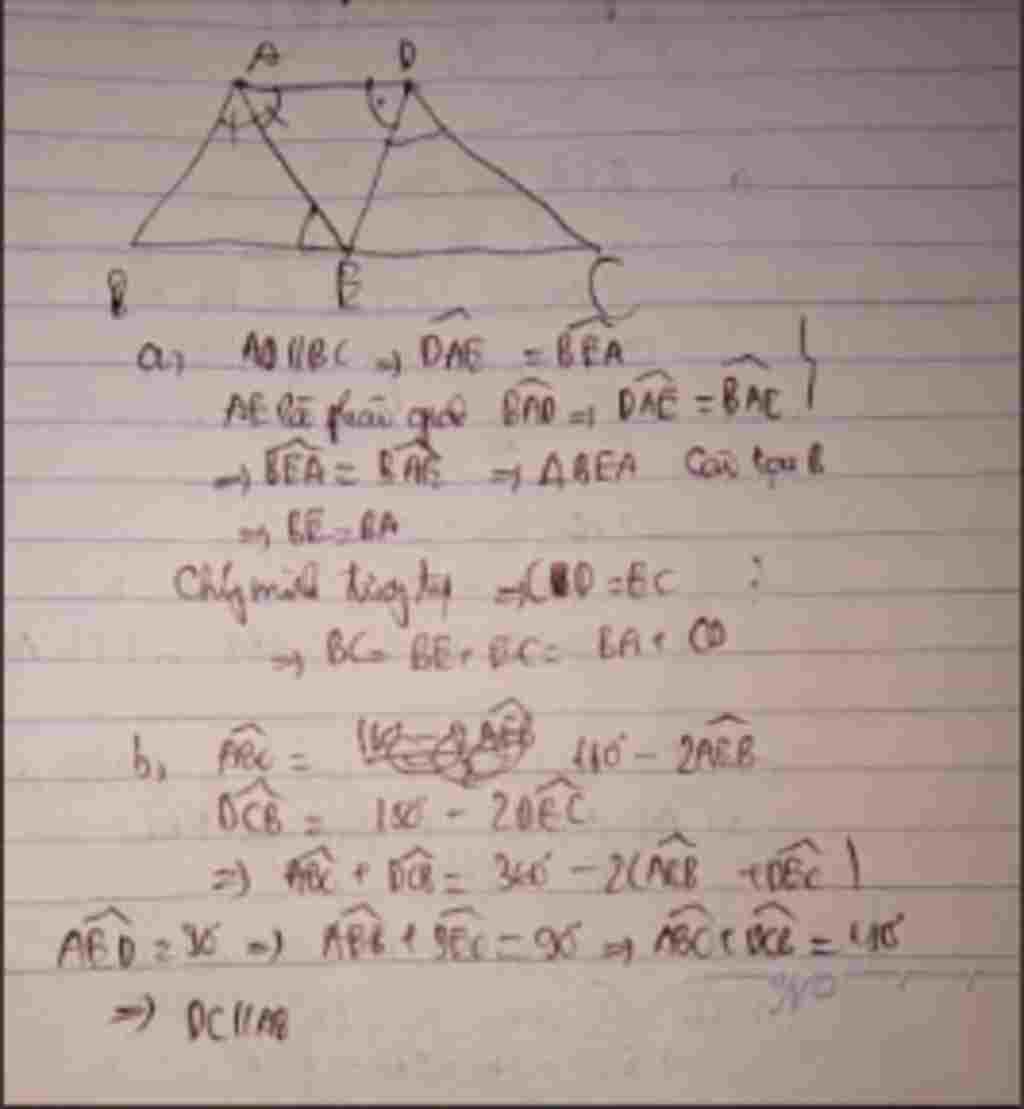 A D
B E C
a, AD // BC => DAE = BEA
AE là phân giác BAD => DAE = BAE
=> BEA = BAE => Δ BEA cân tại B
=> BE = BA
Chứng minh tương tự => CD = EC
=> BC = BE + BC = BA + CD
b, ABC = 180° - 2AEB
DCB = 180° - 2DEC
=> ABC + DCB = 360° - 2(AEB + DEC)
AED = => AEB + DEC = 90° => ABC + DCB =
=> DC // AB